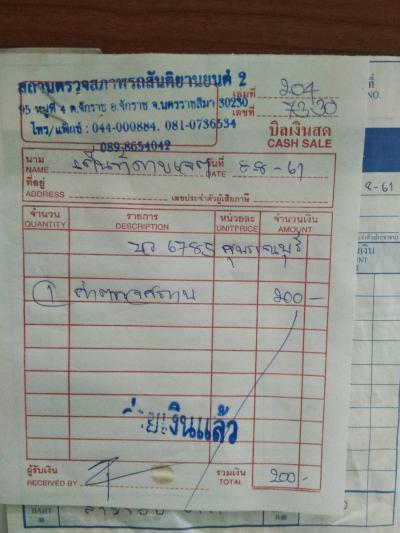 สถานตรวจสภาพรถสันติยานยนต์ 2
95 หมู่ที่ 4 ต.จักราช อ.จักราช จ.นครราชสีมา 30230
โทร/แฟ็กซ์ : 044-000884. 081-0736534
089-8654042
เล่มที่ 204
เลขที่ 7330
บิลเงินสด
CASH SALE
นาม
NAME
วันที่ 8-8-61
DATE
ที่อยู่
ADDRESS
เลขประจำตัวผู้เสียภาษี
จำนวน รายการ หน่วยละ จำนวนเงิน
QUANTITY DESCRIPTION UNITPRICE AMOUNT
6785 สุพรรณบุรี
1 ค่าตรวจสภาพ 200 -
จ่ายเงินแล้ว
ผู้รับเงิน
RECEIVED BY
รวมเงิน 200 -
TOTAL
8-61